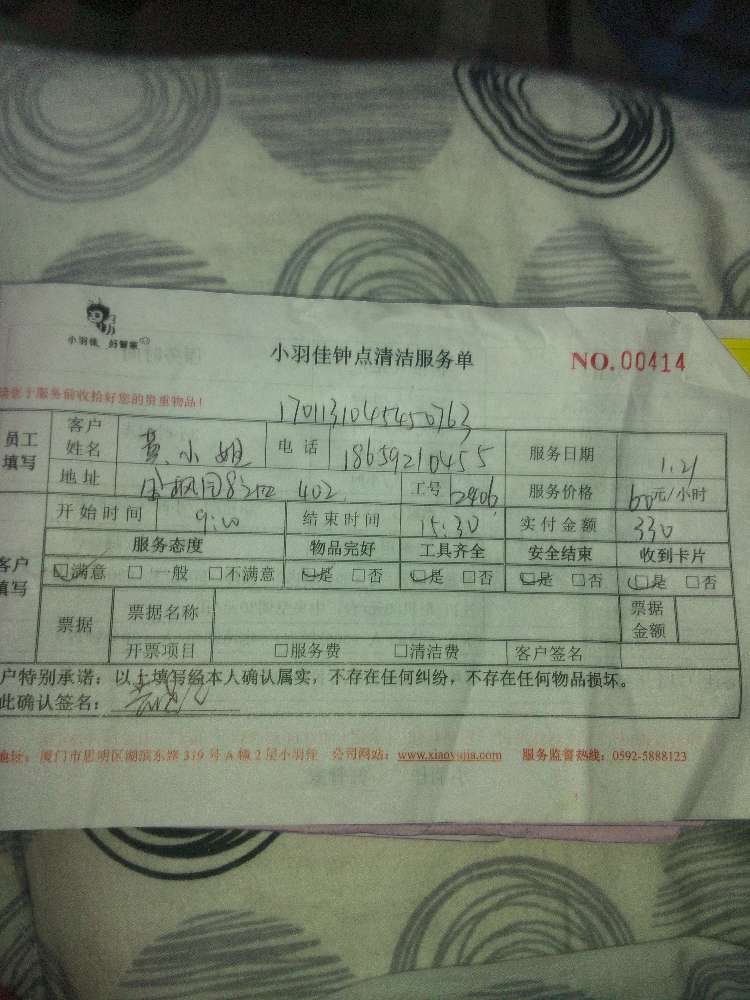 小羽佳 好管家
小羽佳钟点清洁服务单 NO.00414
于服务前收拾好您的贵重物品!
170113104545450763
员工填写 客户姓名 黄小姐 电话 18659210455 服务日期 1.21
地址 402 工号 2406 服务价格 60元/小时
开始时间 9:00 结束时间 15:30 实付金额 330
客户填写 服务态度 物品完好 工具齐全 安全结束 收到卡片
☑满意 □一般 □不满意 ☑是 □否 ☑是 □否 ☑是 □否 ☑是 □否
票据 票据名称 票据金额
开票项目 □服务费 □清洁费 客户签名
户特别承诺:以上填写经本人确认属实,不存在任何纠纷,不存在任何物品损坏。
此确认签名:
地址:厦门市思明区湖滨东路319号A幢2层小羽佳 公司网站:www.xiaoyujia.com 服务监督热线:0592-5888123